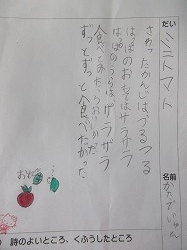 だい
ミニトマト
さわったかんじはつるつる
はっぱのおもてはサラサラ
はっぱのうらはザラザラ
食べてみたら
ずっとずっと食べたかった
おもて
名前
詩のよいところ、くふうしたところ